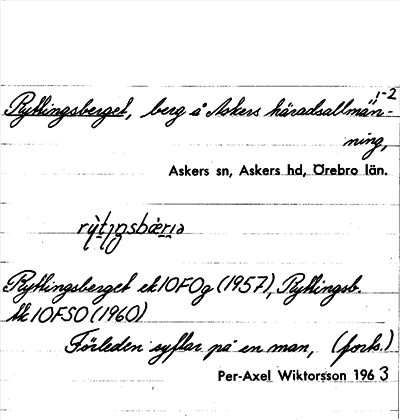 1-2
Ryttingsberget, berg å Askers häradsallmän-
ning,
Askers sn, Askers hd, Örebro län.
Ryttingsberget ek10F0g (1957), Ryttingsb.
tk 10FSO (1960)
Förleden syftar på en man, (forts.)
Per-Axel Wiktorsson 1963